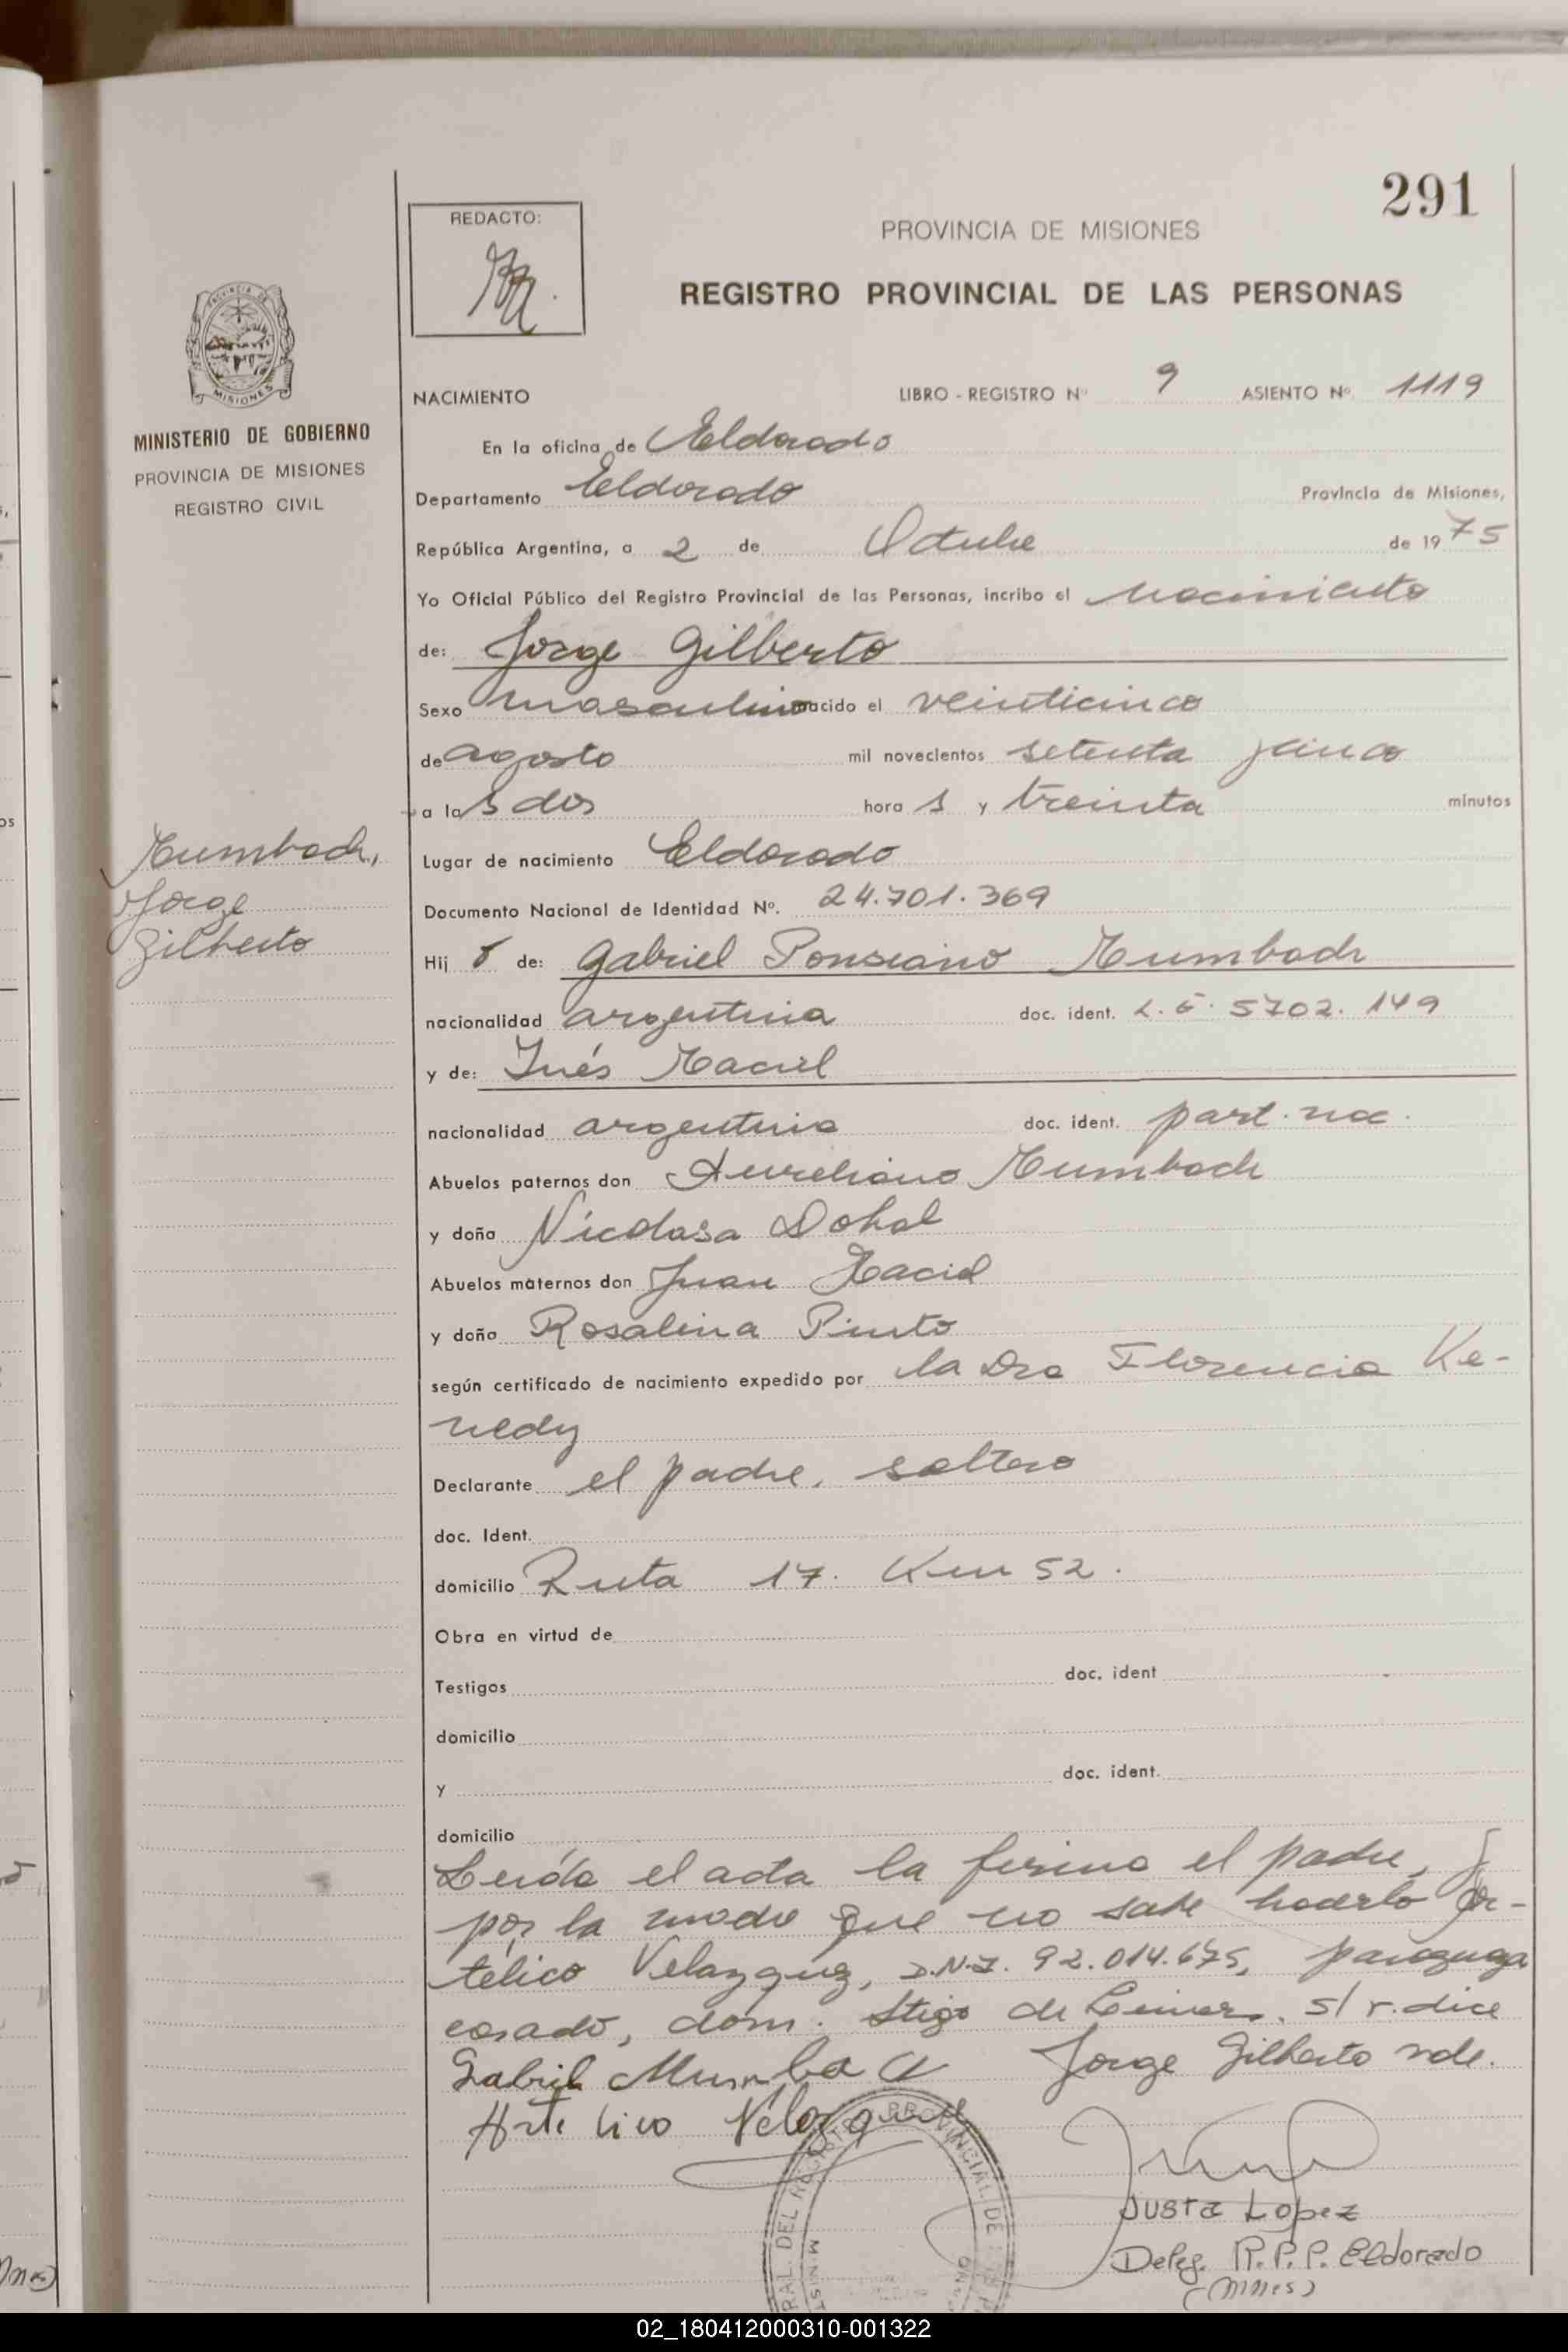 291
REDACTO:
PROVINCIA DE MISIONES
REGISTRO PROVINCIAL DE LAS PERSONAS
PROVINCIA DE
MISIONES
MINISTERIO DE GOBIERNO
PROVINCIA DE MISIONES
REGISTRO CIVIL
NACIMIENTO LIBRO - REGISTRO Nº 9 ASIENTO Nº. 1119
En la oficina de Eldorado
Departamento Eldorado Provincia de Misiones,
República Argentina, a 2 de Octubre de 1975
Yo Oficial Público del Registro Provincial de las Personas, incribo el nacimiento
de: Jorge Gilberto
Sexo masculino nacido el veinticinco
de agosto mil novecientos setenta y cinco
a las dos hora s y treinta minutos
Mumbach,
Jorge
Gilberto
Lugar de nacimiento Eldorado
Documento Nacional de Identidad Nº. 24.701.369
Hij o de: Gabriel Ponseano Mumbach
nacionalidad argentina doc. ident. L.E. 5702.149
y de: Inés Maciel
nacionalidad argentina doc. ident. part. nac.
Abuelos paternos don Aureliano Mumbach
y doña Nicolasa Dohal
Abuelos maternos don Juan Maciel
y doña Rosalina Pinto
según certificado de nacimiento expedido por la Dra Florencia Ke-
nedy
Declarante el padre, soltero
doc. Ident.
domicilio Ruta 17. Km 52.
Obra en virtud de
Testigos doc. ident
domicilio
y doc. ident.
domicilio
Leída el acta la firma el padre, y
por la madre que no sabe hacerlo Ar-
télico Velazquez, D.N.I. 92.014.675, paraguaya
casado, dom. Stigo de Liniers. s/r. dice
Gabril Mumbach Jorge Gilberto vale.
Arte lico Velazquez
Justa Lopez
Deleg. R.P.P. Eldorado
(Mnes)
02_180412000310-001322